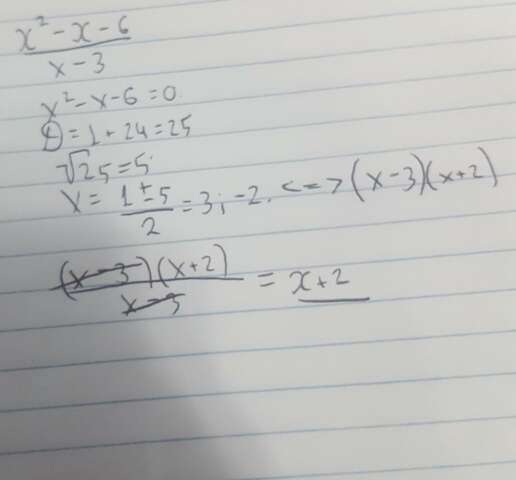 x² - x - 6
x - 3
x² - x - 6 = 0
D = 1 + 24 = 25
√25 = 5
x = 1 ± 5 / 2 = 3; -2. <=> (x - 3)(x + 2)
(x - 3)(x + 2) / x - 3 = x + 2